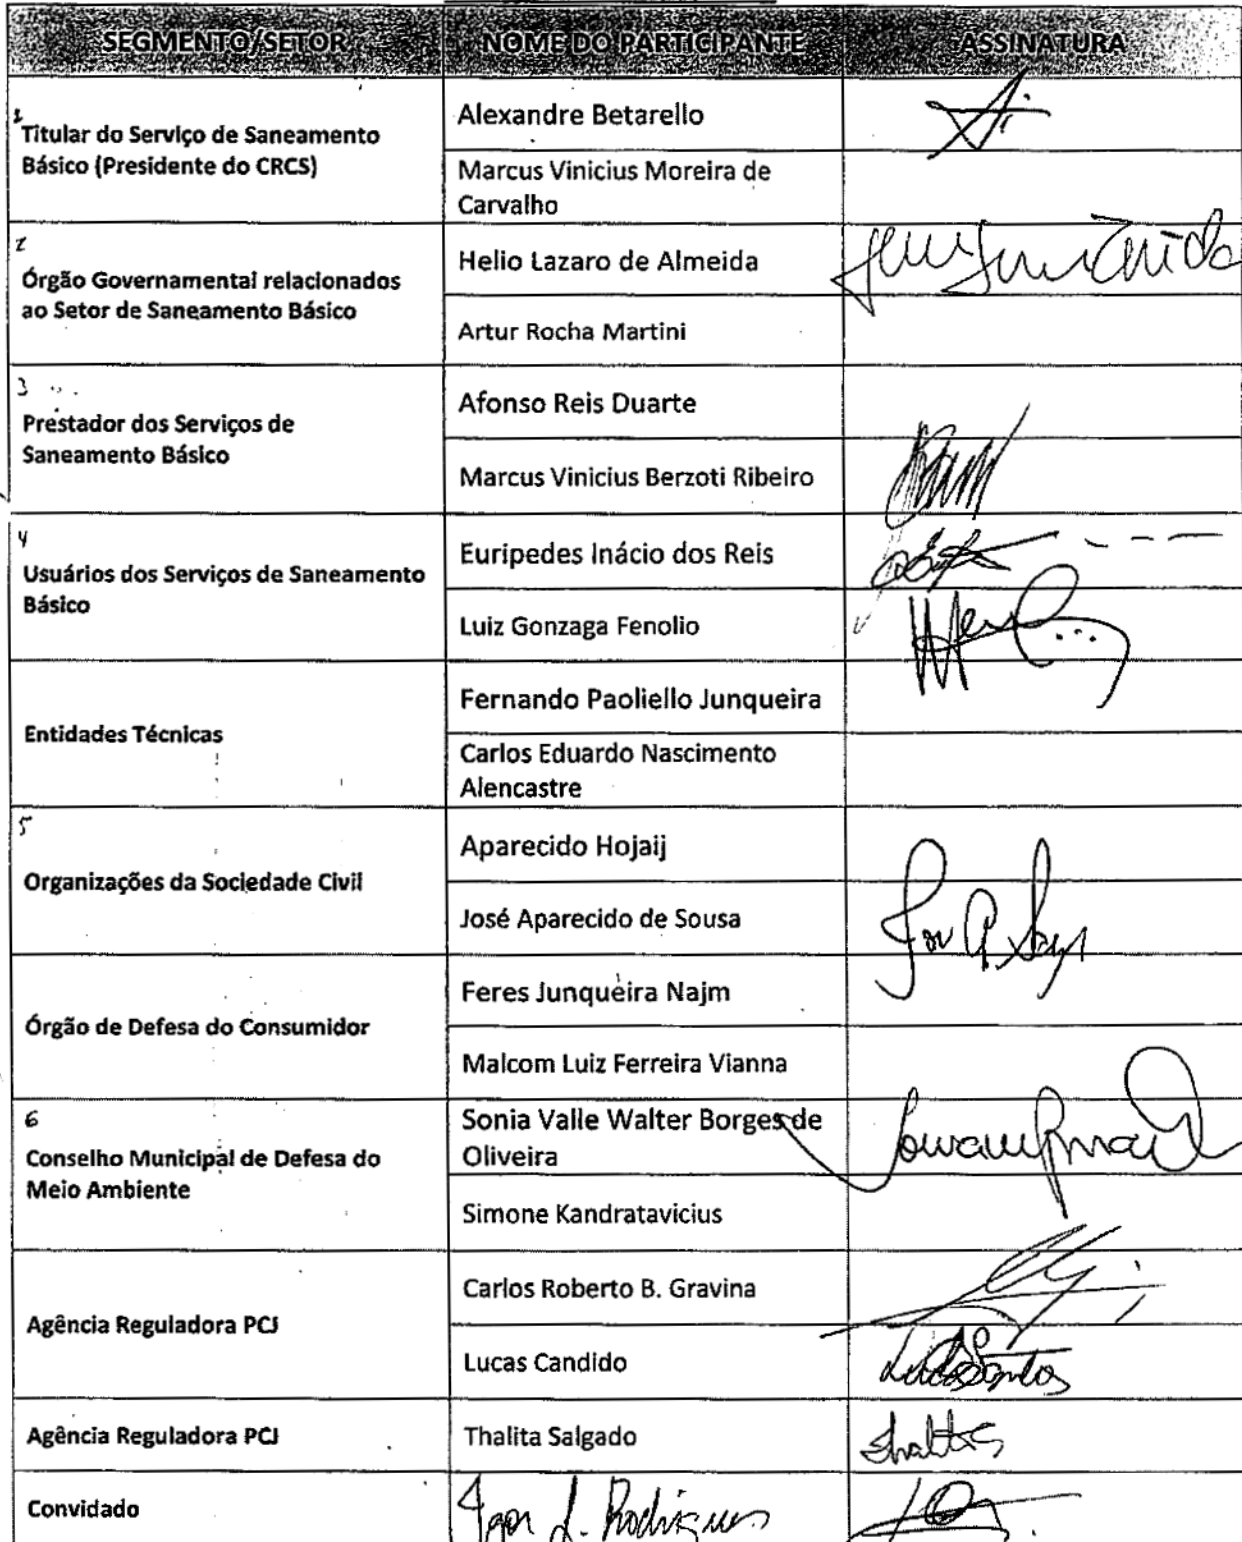 SEGMENTO/SETOR NOME DO PARTICIPANTE ASSINATURA
1
Titular do Serviço de Saneamento
Básico (Presidente do CRCS)
Alexandre Betarello
Marcus Vinicius Moreira de
Carvalho
2
Órgão Governamental relacionados
ao Setor de Saneamento Básico
Helio Lazaro de Almeida
Artur Rocha Martini
3
Prestador dos Serviços de
Saneamento Básico
Afonso Reis Duarte
Marcus Vinicius Berzoti Ribeiro
4
Usuários dos Serviços de Saneamento
Básico
Euripedes Inácio dos Reis
Luiz Gonzaga Fenolio
Entidades Técnicas
Fernando Paoliello Junqueira
Carlos Eduardo Nascimento
Alencastre
5
Organizações da Sociedade Civil
Aparecido Hojaij
José Aparecido de Sousa
Órgão de Defesa do Consumidor
Feres Junqueira Najm
Malcom Luiz Ferreira Vianna
6
Conselho Municipal de Defesa do
Meio Ambiente
Sonia Valle Walter Borges de
Oliveira
Simone Kandratavicius
Agência Reguladora PCJ
Carlos Roberto B. Gravina
Lucas Candido
Agência Reguladora PCJ
Thalita Salgado
Convidado
Igor L. Rodrigues